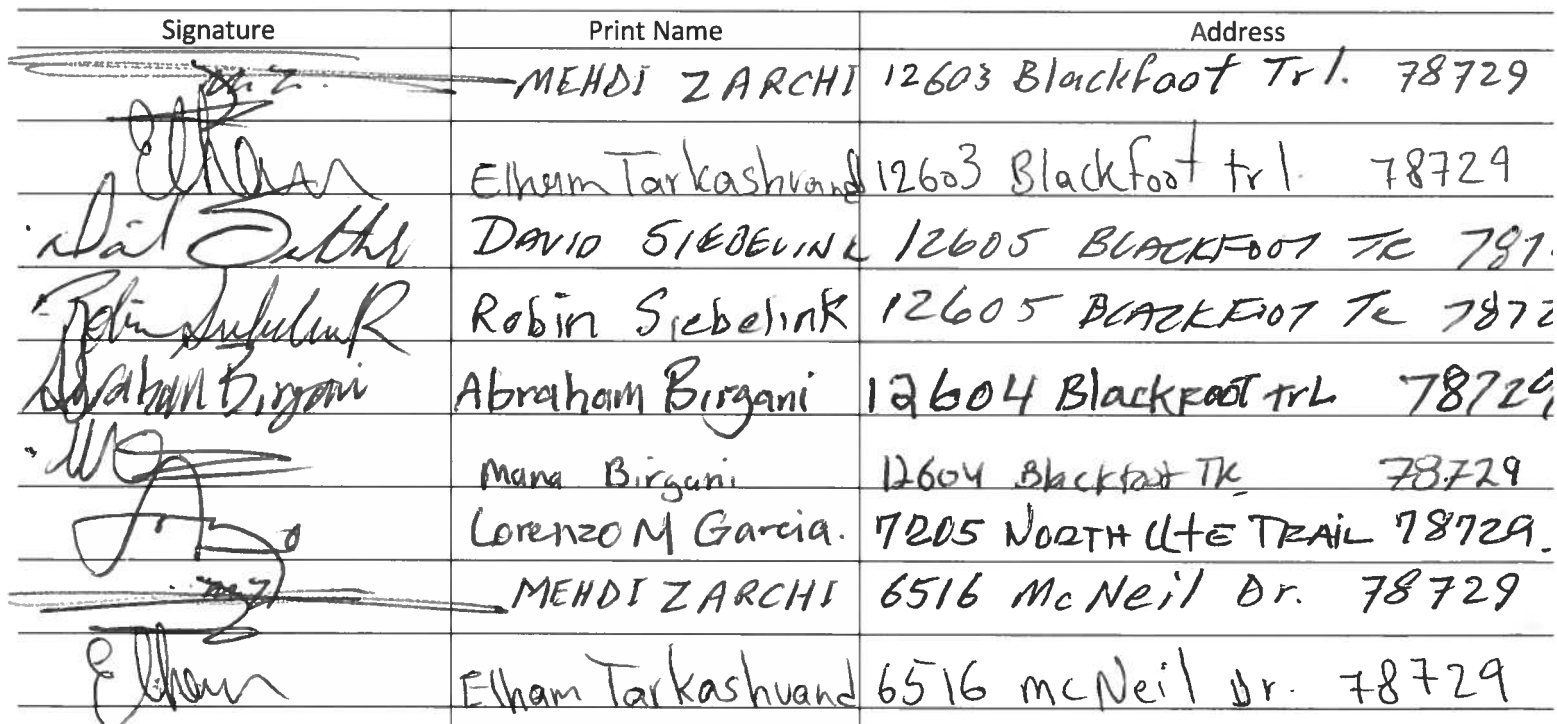 Signature Print Name Address
M. Z. MEHDI ZARCHI 12603 Blackfoot Trl. 78729
Elham Elham Tarkashvand 12603 Blackfoot trl. 78729
DAVID SIEBELINK 12605 BLACKFOOT TR 787
Robin Siebelink Robin SiebelinK 12605 BLACKFOOT TR 7872
Abraham Birgani Abraham Birgani 12604 BlackFOOT trL 78729
Mana Birgani 12604 Blackfoot TR 78729
Lorenzo M Garcia. 7205 NORTH UtE TRAIL 78729.
M. Z. MEHDI ZARCHI 6516 McNeil Dr. 78729
Elham Elham Tarkashvand 6516 mcNeil Dr. 78729